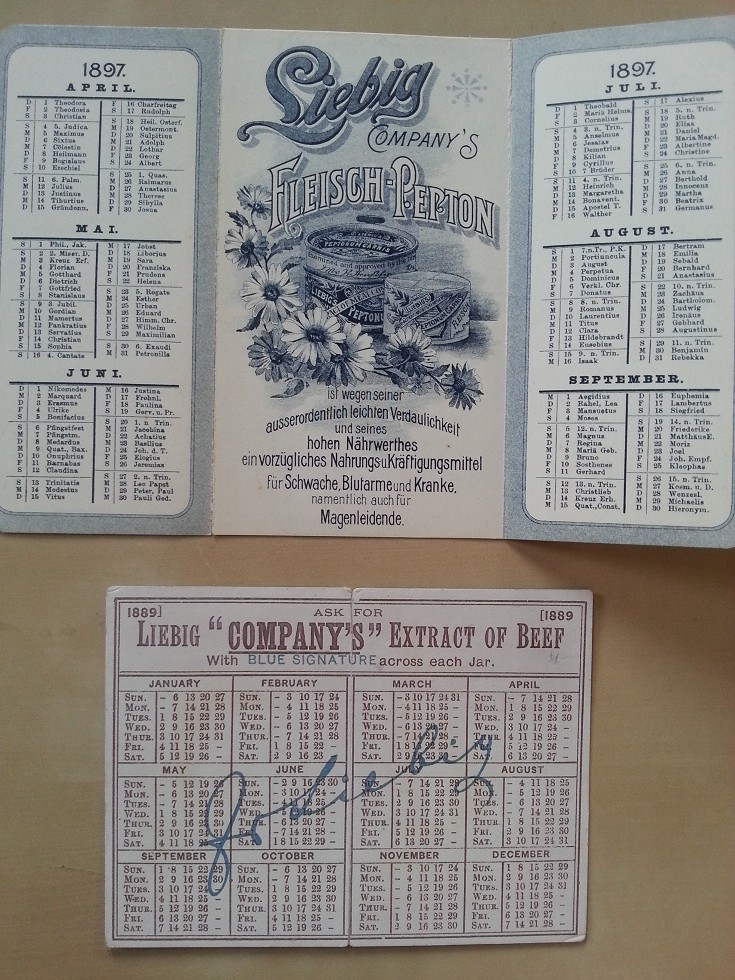 1897.
APRIL.
D 1 Theodora
F 2 Theodosia
S 3 Christian
S 4 5. Judica
M 5 Maximus
D 6 Sixtus
M 7 Cölestin
D 8 Heilmann
F 9 Bogislaus
S 10 Ezechiel
S 11 6. Palm.
M 12 Julius
D 13 Justinus
M 14 Tiburtius
D 15 Gründonn.
F 16 Charfreitag
S 17 Rudolph
S 18 Heil. Osterf.
M 19 Ostermont.
D 20 Sulpitius
M 21 Adolph
D 22 Lothar
F 23 Georg
S 24 Albert
S 25 1. Quas.
M 26 Raimarus
D 27 Anastasius
M 28 Therese
D 29 Sibylla
F 30 Josua
MAI.
S 1 Phil., Jak.
S 2 2. Miser. D.
M 3 Kreuz Erf.
D 4 Florian
M 5 Gotthard
D 6 Dietrich
F 7 Gottfried
S 8 Stanislaus
S 9 3. Jubil.
M 10 Gordian
D 11 Mamertus
M 12 Pankratius
D 13 Servatius
F 14 Christian
S 15 Sophia
S 16 4. Cantate
M 17 Jobst
D 18 Liborius
M 19 Sara
D 20 Franziska
F 21 Prudens
S 22 Helena
S 23 5. Rogate
M 24 Esther
D 25 Urban
M 26 Eduard
D 27 Himm. Chr.
F 28 Wilhelm
S 29 Maximilian
S 30 6. Exaudi
M 31 Petronilla
JUNI.
D 1 Nikomedes
M 2 Marquard
D 3 Erasmus
F 4 Ulrike
S 5 Bonifacius
S 6 Pfingstfest
M 7 Pfingstm.
D 8 Medardus
M 9 Quat., Bax.
D 10 Onuphrius
F 11 Barnabas
S 12 Claudina
S 13 Trinitatis
M 14 Modestus
D 15 Vitus
M 16 Justina
D 17 Frohnl.
F 18 Paulina
S 19 Gerv. u. Pr.
S 20 1. n Trin.
M 21 Jacobina
D 22 Achatius
M 23 Basilius
D 24 Joh. d. T.
F 25 Elogius
S 26 Jeremias
S 27 2. n Trin.
M 28 Leo Papst
D 29 Peter, Paul
M 30 Pauli Ged.
Liebig
COMPANY'S
FLEISCH-PEPTON
PEPTONUM CARNIS
Examined and approved by
LIEBIG'S
PEPTON
ist wegen seiner
ausserordentlich leichten Verdaulichkeit
und seines
hohen Nährwerthes
ein vorzügliches Nahrungs u Kräftigungsmittel
für Schwache, Blutarme und Kranke,
namentlich auch für
Magenleidende.
1897.
JULI.
D 1 Theobald
F 2 Mariä Heims.
S 3 Cornelius
S 4 3. n. Trin.
M 5 Anselmus
D 6 Jesaias
M 7 Demetrius
D 8 Kilian
F 9 Cyrillus
S 10 7 Brüder
S 11 4. n. Trin.
M 12 Heinrich
D 13 Margaretha
M 14 Bonavent.
D 15 Apostel T.
F 16 Walther
S 17 Alexius
S 18 5. n. Trin.
M 19 Ruth
D 20 Elias
M 21 Daniel
D 22 Maria Magd.
F 23 Albertine
S 24 Christine
S 25 6. n. Trin.
M 26 Anna
D 27 Berthold
M 28 Innocenz
D 29 Martha
F 30 Beatrix
S 31 Germanus
AUGUST.
S 1 7.n.Tr., P.K.
M 2 Portiuncula
D 3 August
M 4 Perpetua
D 5 Dominicus
F 6 Verkl. Chr.
S 7 Donatus
S 8 8. n. Trin.
M 9 Romanus
D 10 Laurentius
M 11 Titus
D 12 Clara
F 13 Hildebrandt
S 14 Eusebius
S 15 9. n. Trin.
M 16 Isaak
D 17 Bertram
M 18 Emilia
D 19 Sebald
F 20 Bernhard
S 21 Anastasius
S 22 10. n. Trin.
M 23 Zachäus
D 24 Bartholom.
M 25 Ludwig
D 26 Irenäus
F 27 Gebhard
S 28 Augustinus
S 29 11. n. Trin.
M 30 Benjamin
D 31 Rebekka
SEPTEMBER.
M 1 Aegidius
D 2 Rahel, Lea
F 3 Mansuetus
S 4 Moses
S 5 12. n. Trin.
M 6 Magnus
D 7 Regina
M 8 Mariä Geb.
D 9 Bruno
F 10 Sosthenes
S 11 Gerhard
S 12 13. n. Trin.
M 13 Christlieb
D 14 Kreuz Erh.
M 15 Quat., Const.
D 16 Euphemia
F 17 Lambertus
S 18 Siegfried
S 19 14. n. Trin.
M 20 Friederike
D 21 Matthäus E.
M 22 Moriz
D 23 Joel
F 24 Joh. Empf.
S 25 Kleophas
S 26 15. n. Trin.
M 27 Kosm. u. D.
D 28 Wenzesl.
M 29 Michaelis
D 30 Hieronym.
1889] ASK FOR [1889
LIEBIG "COMPANY'S" EXTRACT OF BEEF
With BLUE SIGNATURE across each Jar.
JANUARY FEBRUARY MARCH APRIL
SUN. - 6 13 20 27 SUN. - 3 10 17 24 SUN. - 3 10 17 24 31 SUN. - 7 14 21 28
MON. - 7 14 21 28 MON. - 4 11 18 25 MON. - 4 11 18 25 - MON. 1 8 15 22 29
TUES. 1 8 15 22 29 TUES. - 5 12 19 26 TUES. - 5 12 19 26 - TUES. 2 9 16 23 30
WED. 2 9 16 23 30 WED. - 6 13 20 27 WED. - 6 13 20 27 - WED. 3 10 17 24 -
THUR. 3 10 17 24 31 THUR. - 7 14 21 28 THUR. - 7 14 21 28 - THUR. 4 11 18 25 -
FRI. 4 11 18 25 - FRI. 1 8 15 22 - FRI. 1 8 15 22 29 - FRI. 5 12 19 26 -
SAT. 5 12 19 26 - SAT. 2 9 16 23 - SAT. 2 9 16 23 30 - SAT. 6 13 20 27 -
MAY JUNE JULY AUGUST
SUN. - 5 12 19 26 SUN. - 2 9 16 23 30 SUN. - 7 14 21 28 SUN. - 4 11 18 25
MON. - 6 13 20 27 MON. - 3 10 17 24 - MON. 1 8 15 22 29 MON. - 5 12 19 26
TUES. - 7 14 21 28 TUES. - 4 11 18 25 - TUES. 2 9 16 23 30 TUES. - 6 13 20 27
WED. 1 8 15 22 29 WED. - 5 12 19 26 - WED. 3 10 17 24 31 WED. - 7 14 21 28
THUR. 2 9 16 23 30 THUR. - 6 13 20 27 - THUR. 4 11 18 25 - THUR. 1 8 15 22 29
FRI. 3 10 17 24 31 FRI. - 7 14 21 28 - FRI. 5 12 19 26 - FRI. 2 9 16 23 30
SAT. 4 11 18 25 - SAT. 1 8 15 22 29 - SAT. 6 13 20 27 - SAT. 3 10 17 24 31
J v Liebig
SEPTEMBER OCTOBER NOVEMBER DECEMBER
SUN. 1 8 15 22 29 SUN. - 6 13 20 27 SUN. - 3 10 17 24 SUN. 1 8 15 22 29
MON. 2 9 16 23 30 MON. - 7 14 21 28 MON. - 4 11 18 25 MON. 2 9 16 23 30
TUES. 3 10 17 24 - TUES. 1 8 15 22 29 TUES. - 5 12 19 26 TUES. 3 10 17 24 31
WED. 4 11 18 25 - WED. 2 9 16 23 30 WED. - 6 13 20 27 WED. 4 11 18 25 -
THUR. 5 12 19 26 - THUR. 3 10 17 24 31 THUR. - 7 14 21 28 THUR. 5 12 19 26 -
FRI. 6 13 20 27 - FRI. 4 11 18 25 - FRI. 1 8 15 22 29 FRI. 6 13 20 27 -
SAT. 7 14 21 28 - SAT. 5 12 19 26 - SAT. 2 9 16 23 30 SAT. 7 14 21 28 -